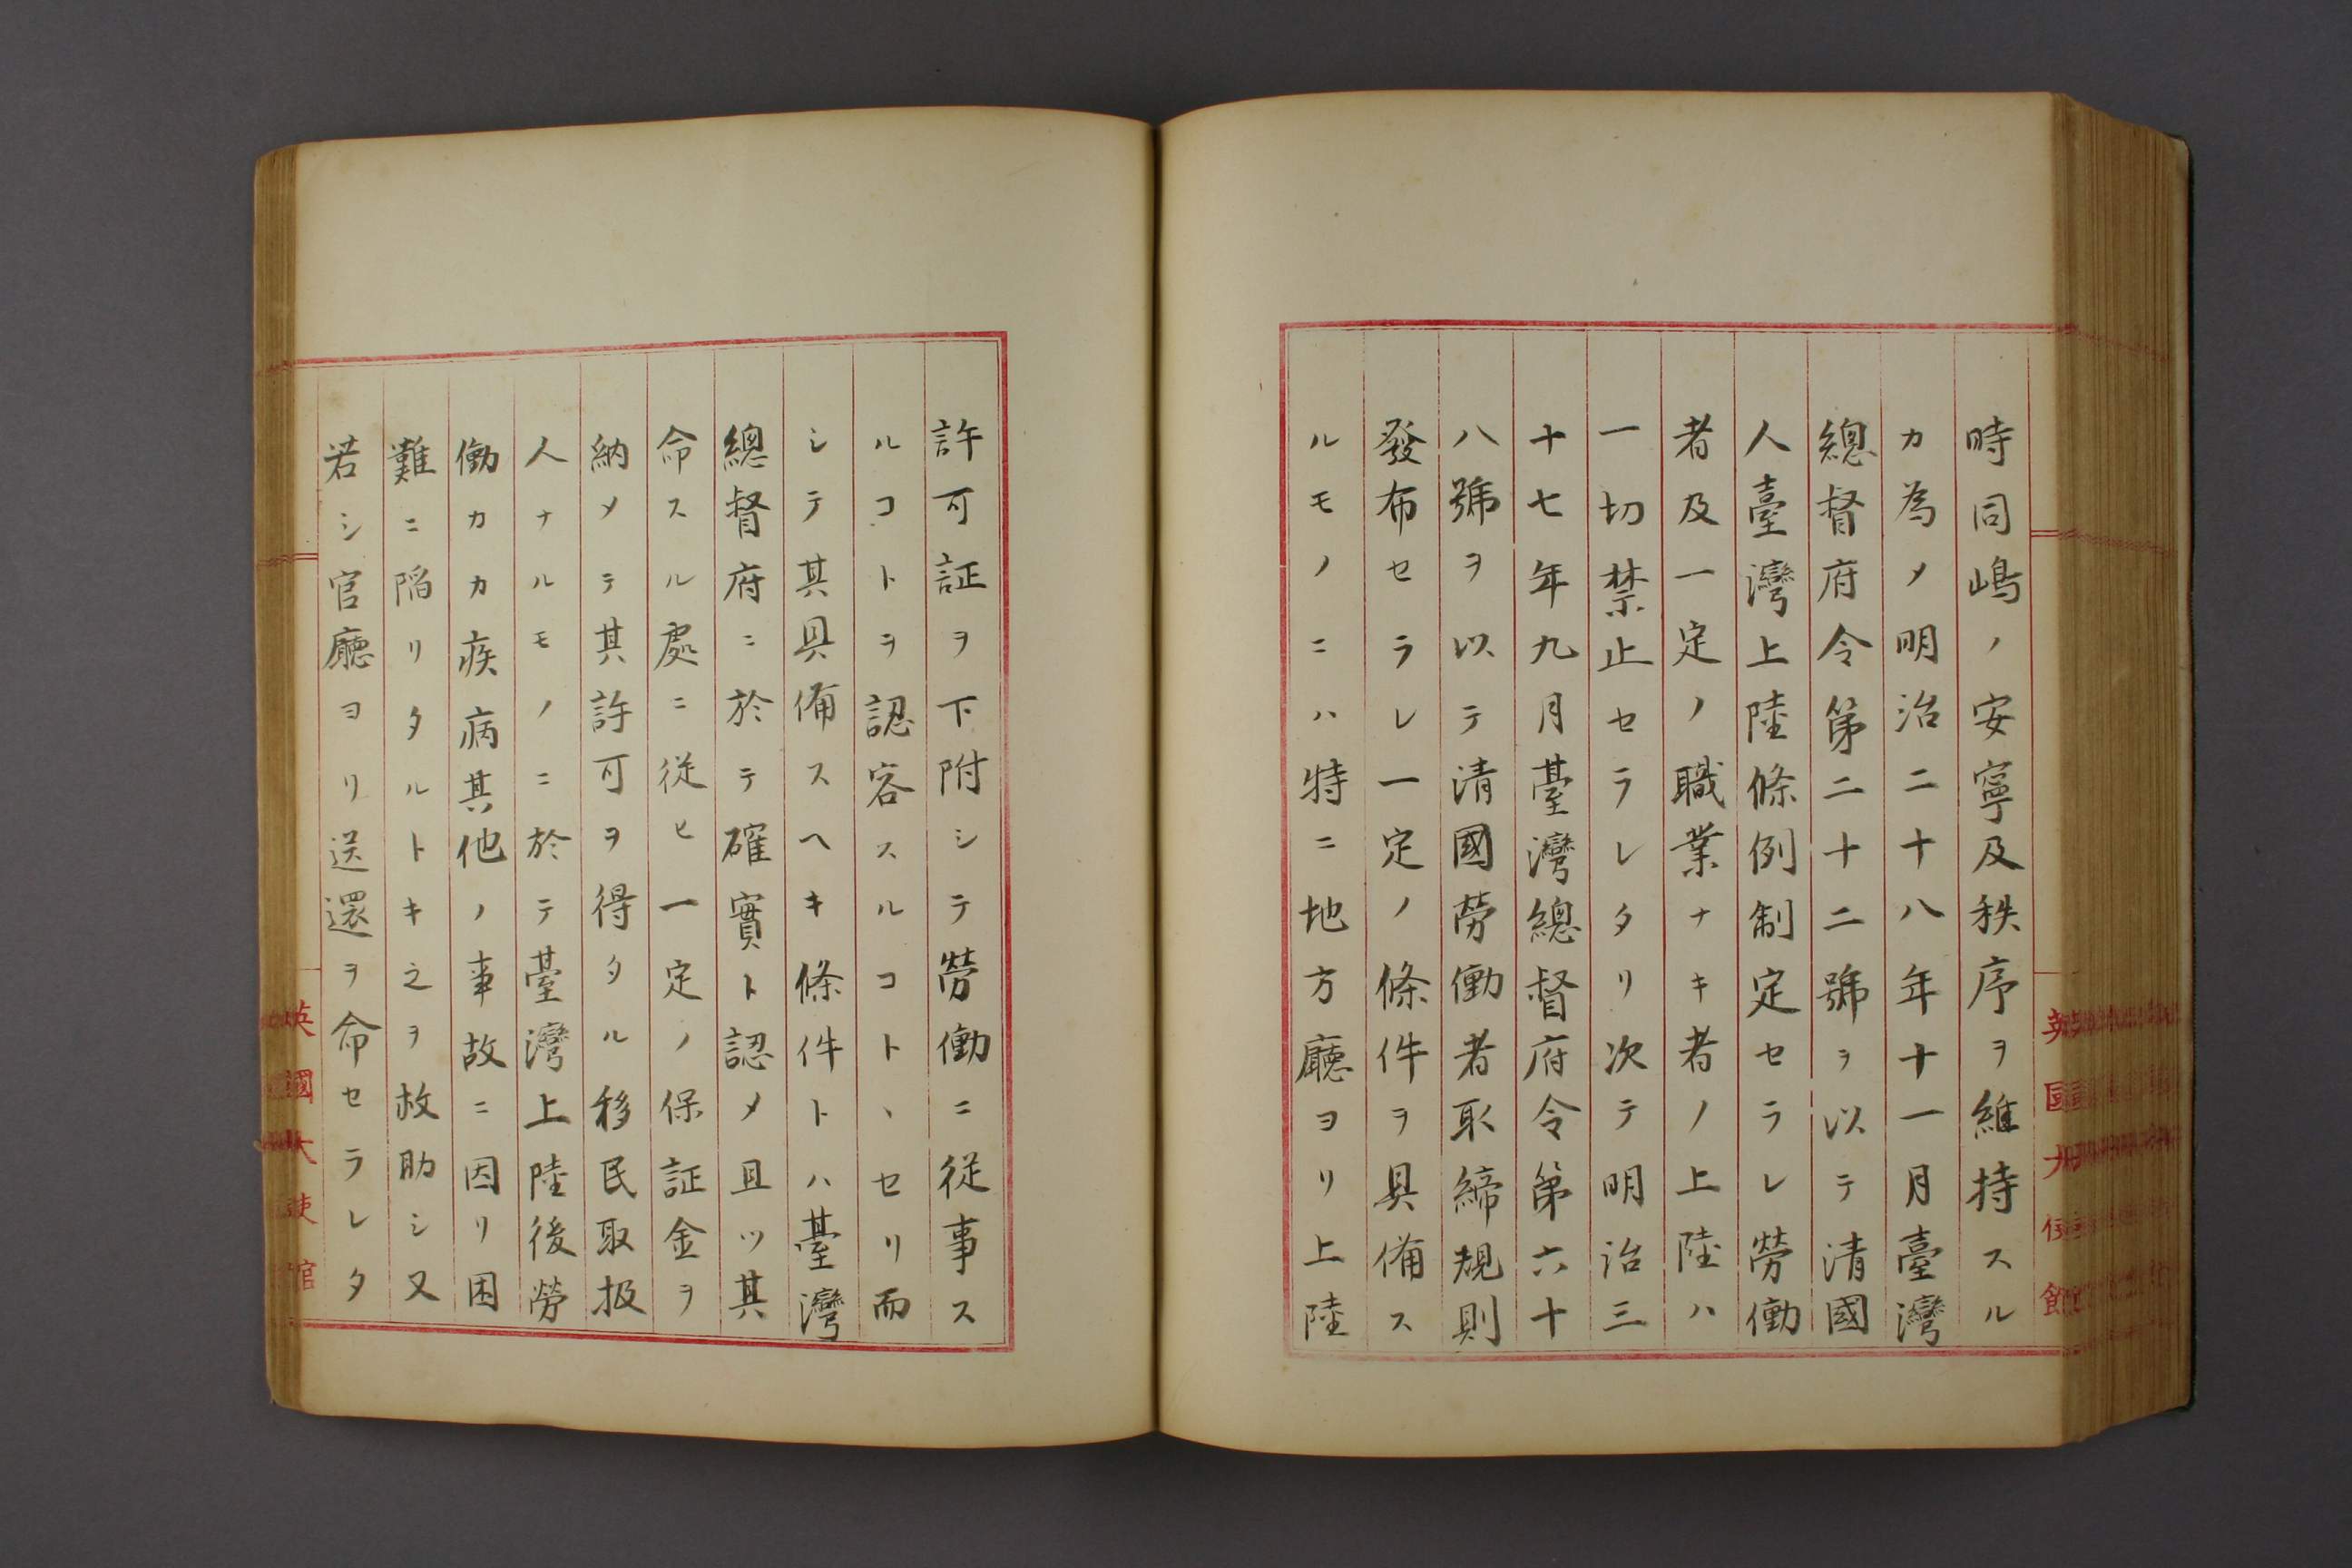 時同嶋ノ安寧及秩序ヲ維持スル
カ為メ明治二十八年十一月臺灣
總督府令第二十二號ヲ以テ清國
人臺灣上陸條例制定セラレ勞働
者及一定ノ職業ナキ者ノ上陸ハ
一切禁止セラレタリ次テ明治三
十七年九月臺灣總督府令第六十
八號ヲ以テ清國勞働者取締規則
發布セラレ一定ノ條件ヲ具備ス
ルモノニハ特ニ地方廳ヨリ上陸
許可証ヲ下附シテ勞働ニ従事ス
ルコトヲ認容スルコトヽセリ而
シテ其具備スヘキ條件トハ臺灣
總督府ニ於テ確實ト認メ且ツ其
命スル處ニ従ヒ一定ノ保証金ヲ
納メテ其許可ヲ得タル移民取扱
人ナルモノニ於テ臺灣上陸後勞
働カカ疾病其他ノ事故ニ因リ困
難ニ陷リタルトキ之ヲ救助シ又
若シ官廳ヨリ送還ヲ命セラレタ
英國大使館